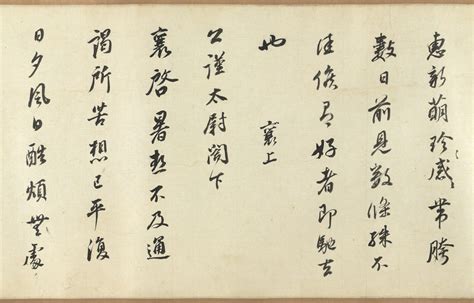 惠新萌珍感帶胯
數日前見數條殊不
佳候有好者即馳去
也 襄上
公謹太尉閤下
襄啓暑熱不及通
謁所苦想已平復
日夕風日酷煩無處